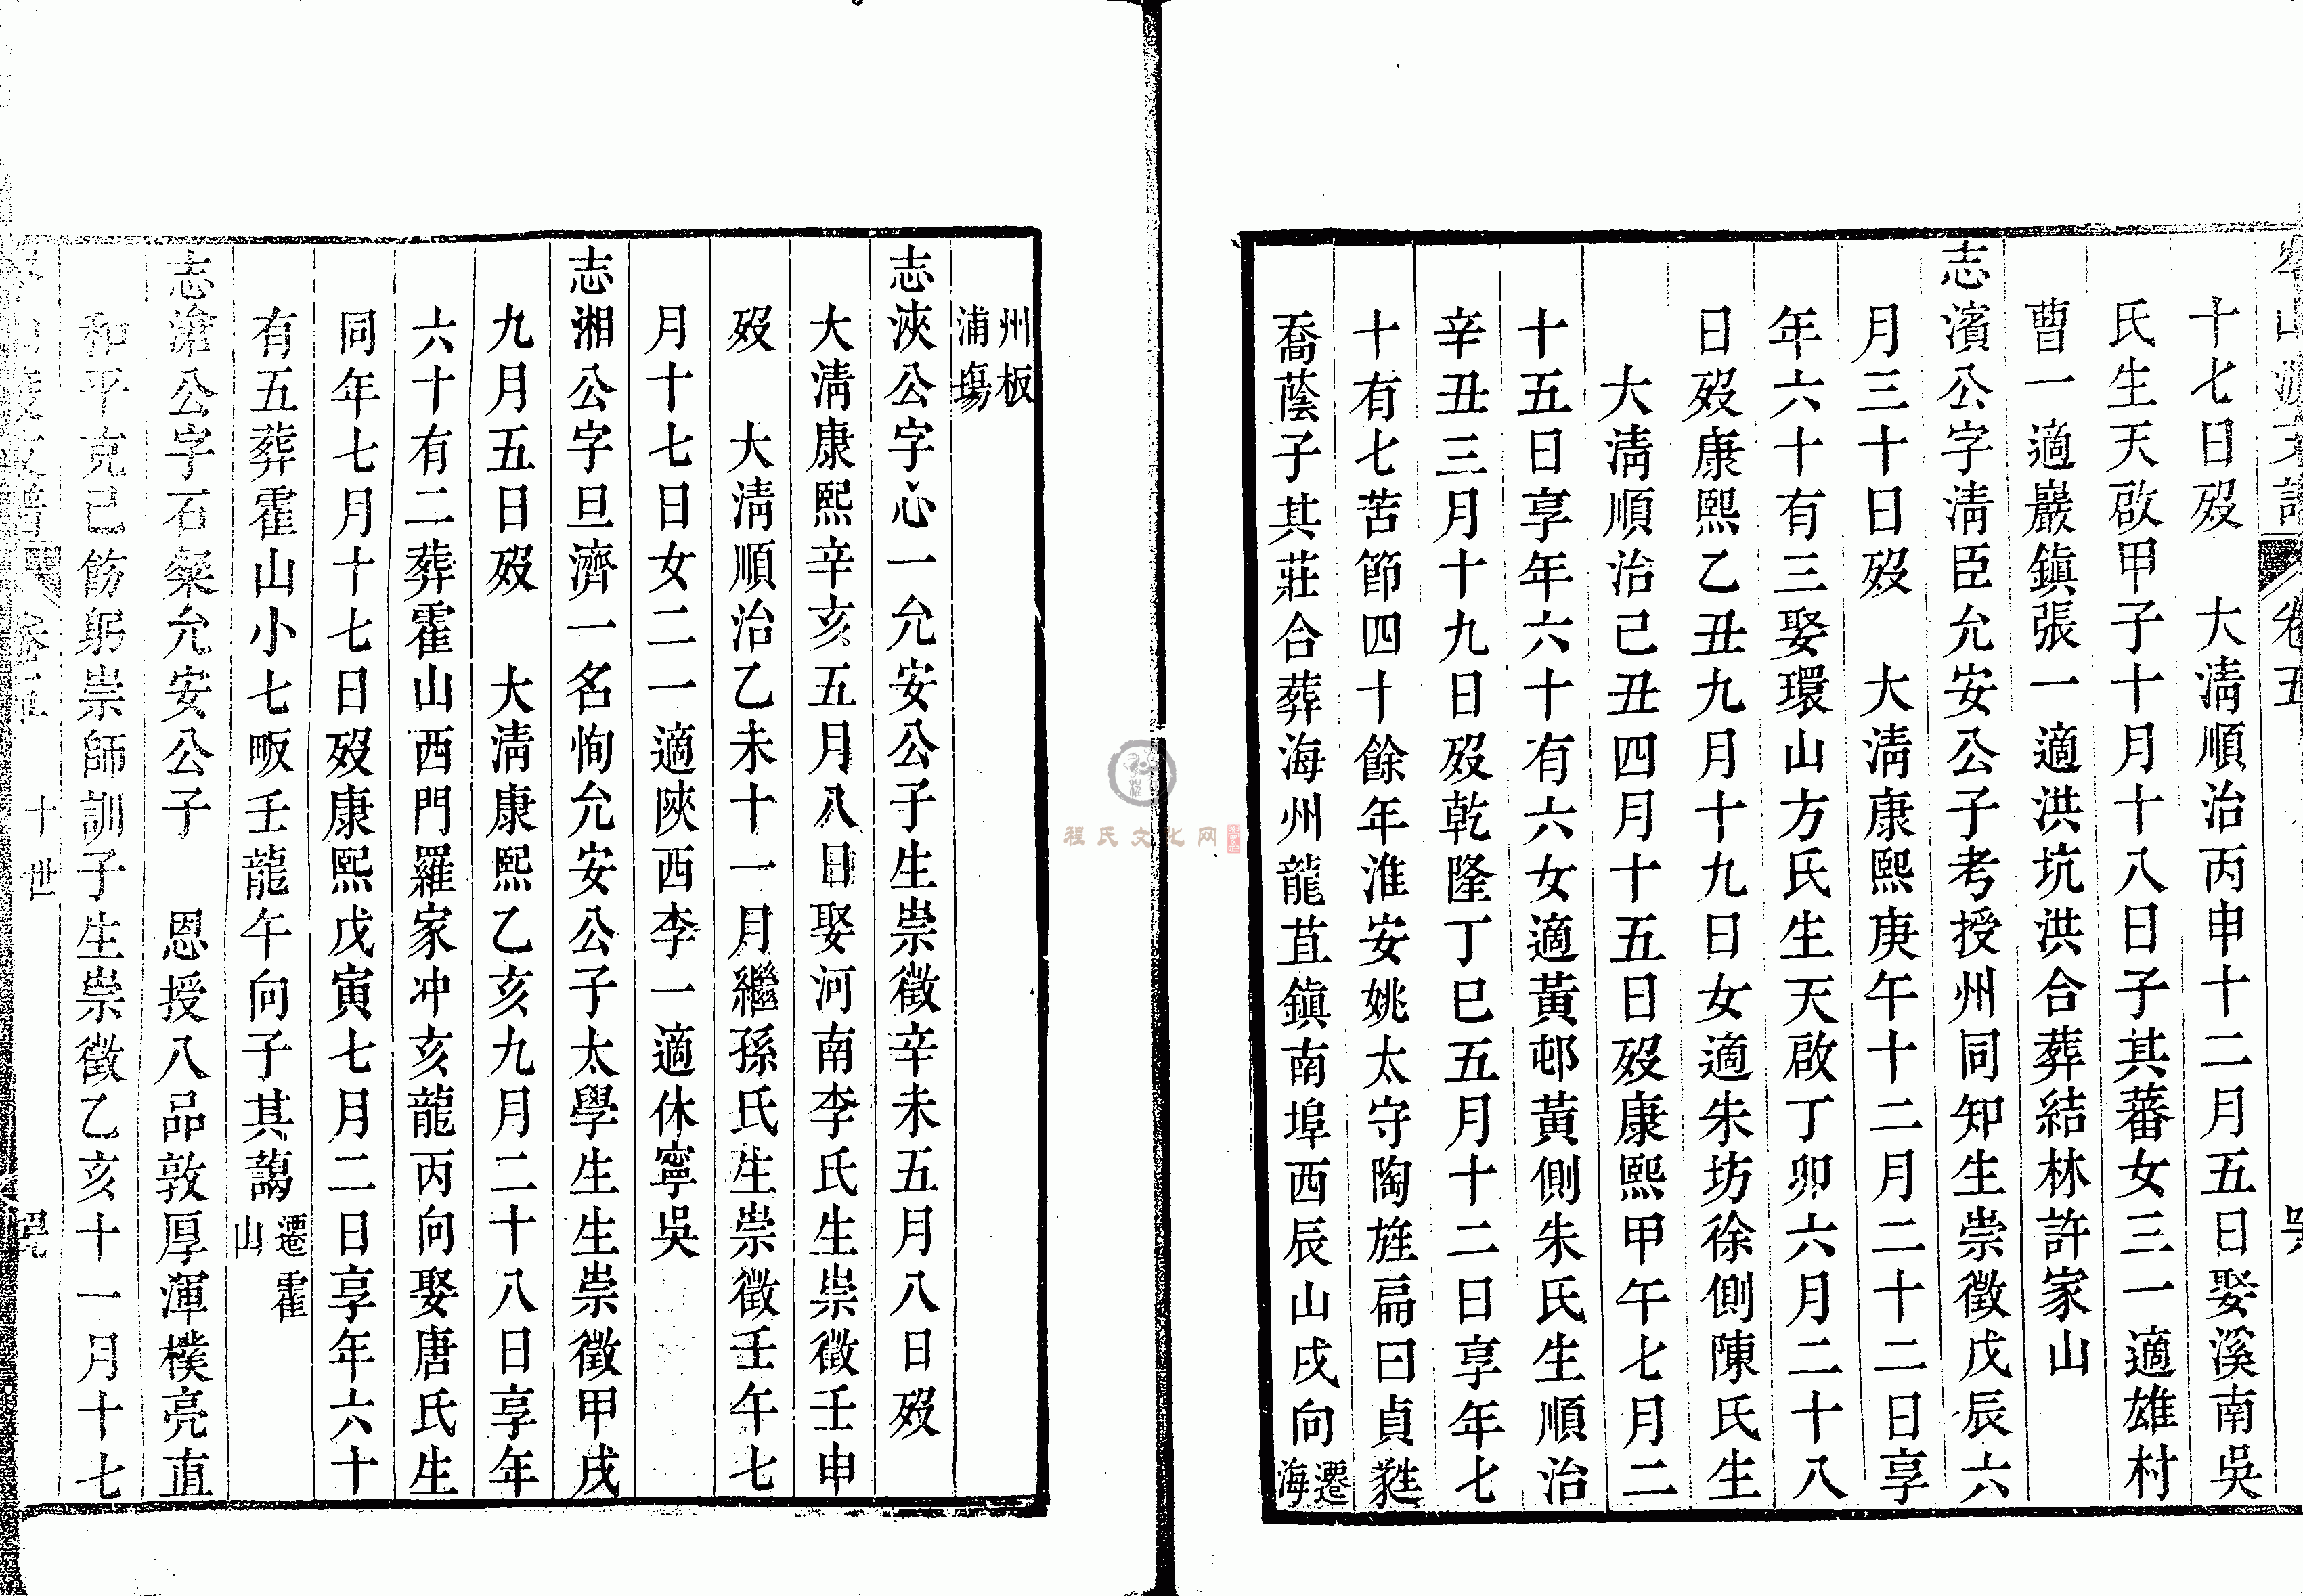 十七日歿　大淸順治丙申十二月五日娶溪南吳
氏生天啟甲子十月十八日子其蕃女三一適雄村
曹一適巖鎭張一適洪坑洪合葬結林許家山
志濱公字淸臣允安公子考授州同知生崇徵戊辰六
月三十日歿　大淸康熙庚午十二月二十二日享
年六十有三娶環山方氏生天啟丁卯六月二十八
日歿康熙乙丑九月十九日女適朱坊徐側陳氏生
大淸順治己丑四月十五日歿康熙甲午七月二
十五日享年六十有六女適黃邨黃側朱氏生順治
辛丑三月十九日歿乾隆丁巳五月十二日享年七
十有七苦節四十餘年淮安姚太守陶旌扁曰貞甡
喬蔭子其莊合葬海州龍苴鎭南埠西辰山戌向遷海
州板浦塲
志浹公字心一允安公子生崇徵辛未五月八日歿
大淸康熙辛亥五月八日娶河南李氏生崇徵壬申
歿　大淸順治乙未十一月繼孫氏生崇徵壬午七
月十七日女二一適陝西李一適休寧吳
志湘公字旦濟一名恂允安公子太學生生崇徵甲戌
九月五日歿　大淸康熙乙亥九月二十八日享年
六十有二葬霍山西門羅家冲亥龍丙向娶唐氏生
同年七月十七日歿康熙戊寅七月二日享年六十
有五葬霍山小七畈壬龍午向子其藹遷霍山
志滄公字石粲允安公子　恩授八品敦厚渾樸亮直
和平克己飭躬崇師訓子生崇徵乙亥十一月十七
卷五　十世
程氏文化网